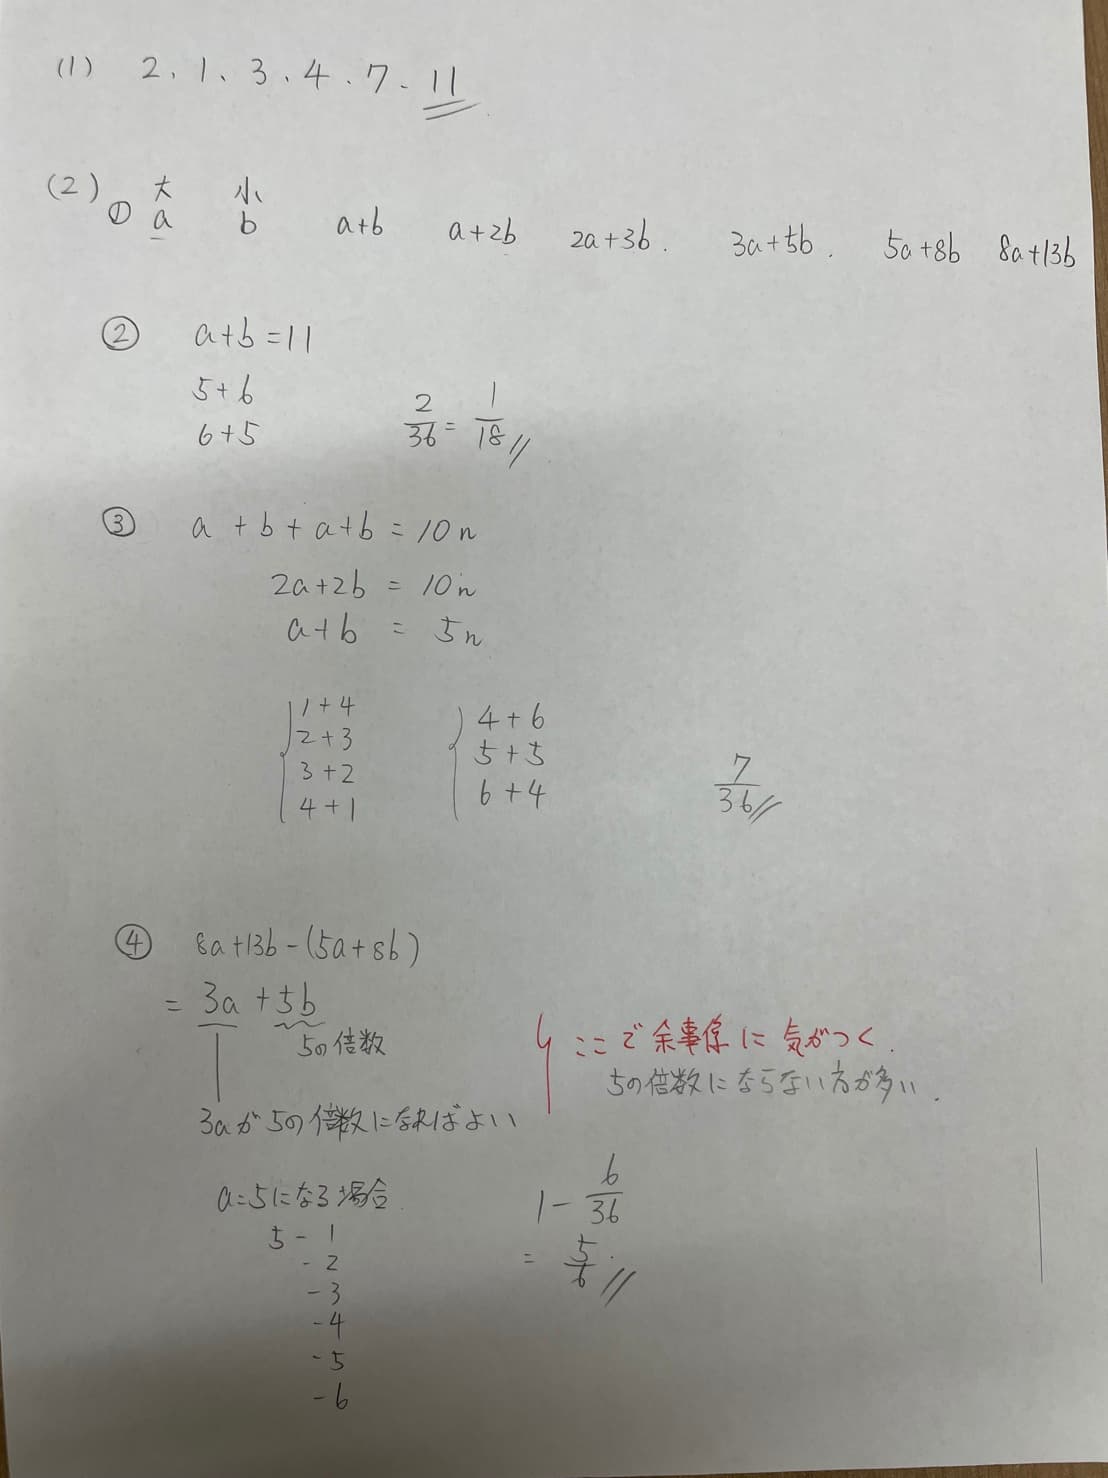 (1) 2、1、3、4、7、11
(2) 大 小
① a b a+b a+2b 2a+3b. 3a+5b. 5a+8b 8a+13b
② a+b=11
5+6
6+5
2/36 = 1/18
③ a+b+a+b=10n
2a+2b = 10n
a+b = 5n
1+4
2+3
3+2
4+1
4+6
5+5
6+4
7/36
④ 8a+13b-(5a+8b)
= 3a+5b
5の倍数
3aが5の倍数になればよい
ここで余事象に気がつく.
5の倍数にならない方が多い.
a=5になる場合
5-1
-2
-3
-4
-5
-6
1-6/36
= 5/6